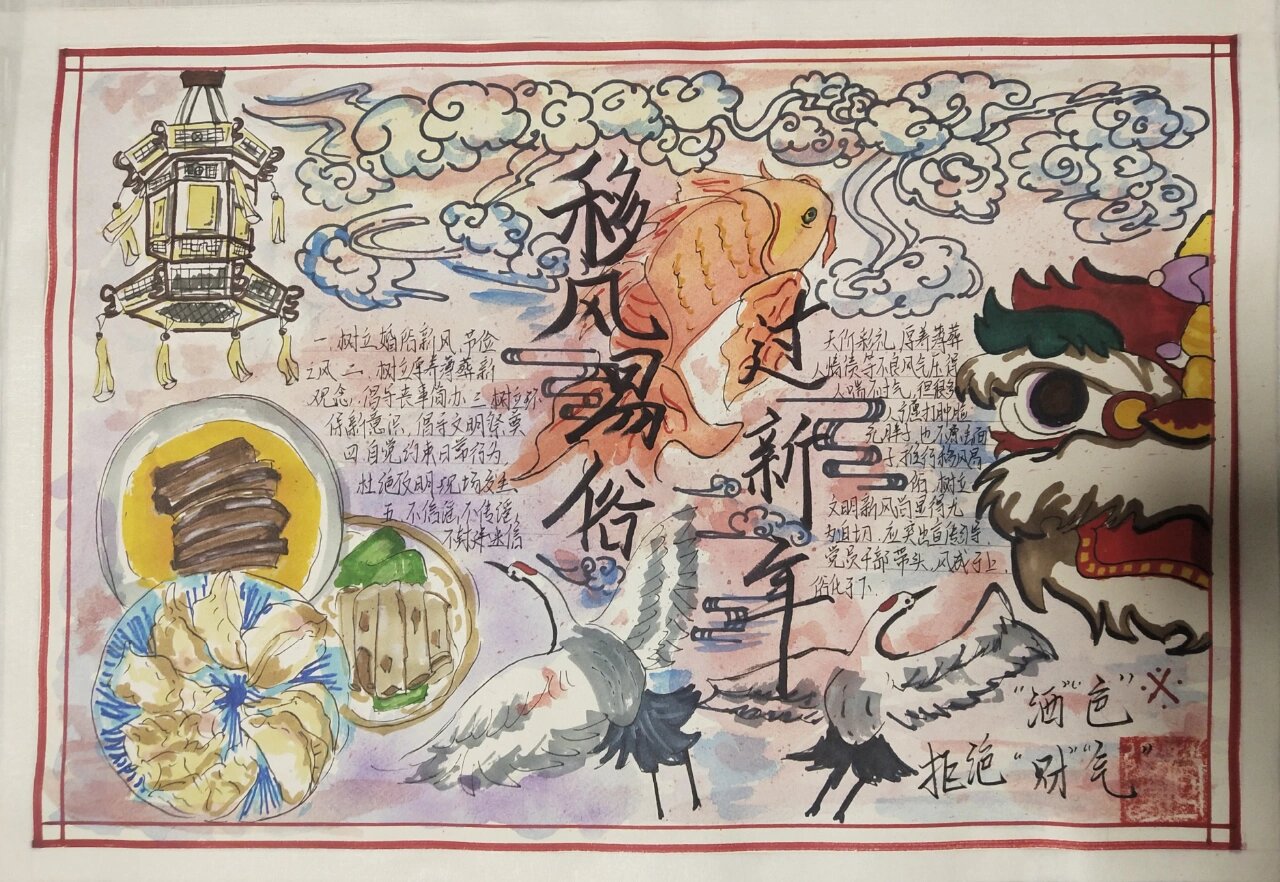 移风易俗
过新年
一.树立婚俗新风,节俭
之风 二、树立厚养薄葬新
观念,倡导丧事简办.三.树立环
保新意识,倡导文明祭奠
四.自觉约束日常行为
杜绝
五、不信谣,不传谣,
不封建迷信
天价彩礼,厚养薄葬
人情债等不良风气压得
人喘不过气,但很多
人宁愿打肿脸
充胖子,也不愿丢面
子,推行移风易
俗、树立
文明新风尚显得尤
为迫切.应突出宣传引导,
党员干部带头,风成于上,
俗化于下.
"酒""色"
拒绝"财""气"